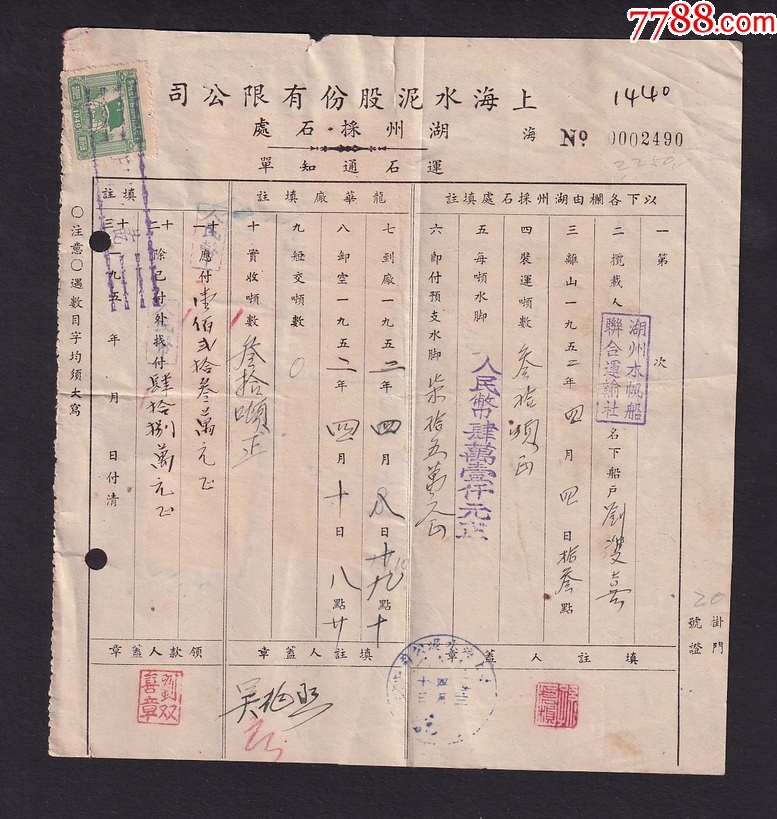 7788.com
上海水泥股份有限公司
1440
湖州採石處
海
№ 0002490
運石通知單
2250
以下各欄由湖州採石處填註
一 第 次
二 攬載人 湖州木帆船聯合運輸社 名下船戶 劉雙喜
三 離山一九五二年四月四日拾叁點
四 裝運噸數 叁拾噸正
五 每噸水脚 人民幣肆萬壹仟元正
六 即付預支水脚 柒拾五萬元正
龍華廠填註
七 到廠一九五二年四月八日 十點
八 卸空一九五二年四月十日八點廿
九 短交噸數 0
十 實收噸數 叁拾噸正
填註
十一 應付 壹佰弍拾叁萬元正
十二 除已付外找付 肆拾捌萬元正
十三 一九五 年 月 日付清
〇注意〇遇數目字均須大寫
掛門號證
20
填註人蓋章
填註人蓋章
領款人蓋章
劉双喜章
1949